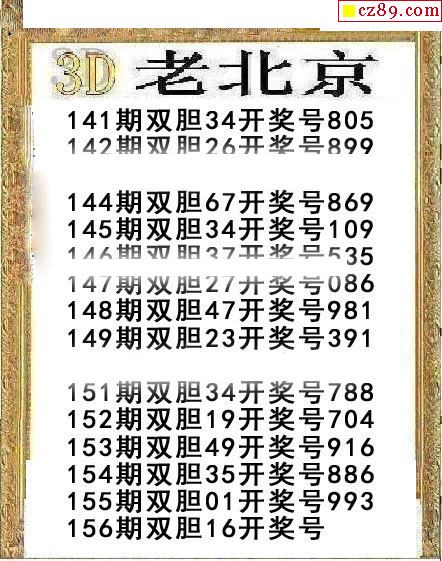 cz89.com
3D 老北京
141期双胆34开奖号805
142期双胆26开奖号899
144期双胆67开奖号869
145期双胆34开奖号109
146期双胆37开奖号535
147期双胆27开奖号086
148期双胆47开奖号981
149期双胆23开奖号391
151期双胆34开奖号788
152期双胆19开奖号704
153期双胆49开奖号916
154期双胆35开奖号886
155期双胆01开奖号993
156期双胆16开奖号